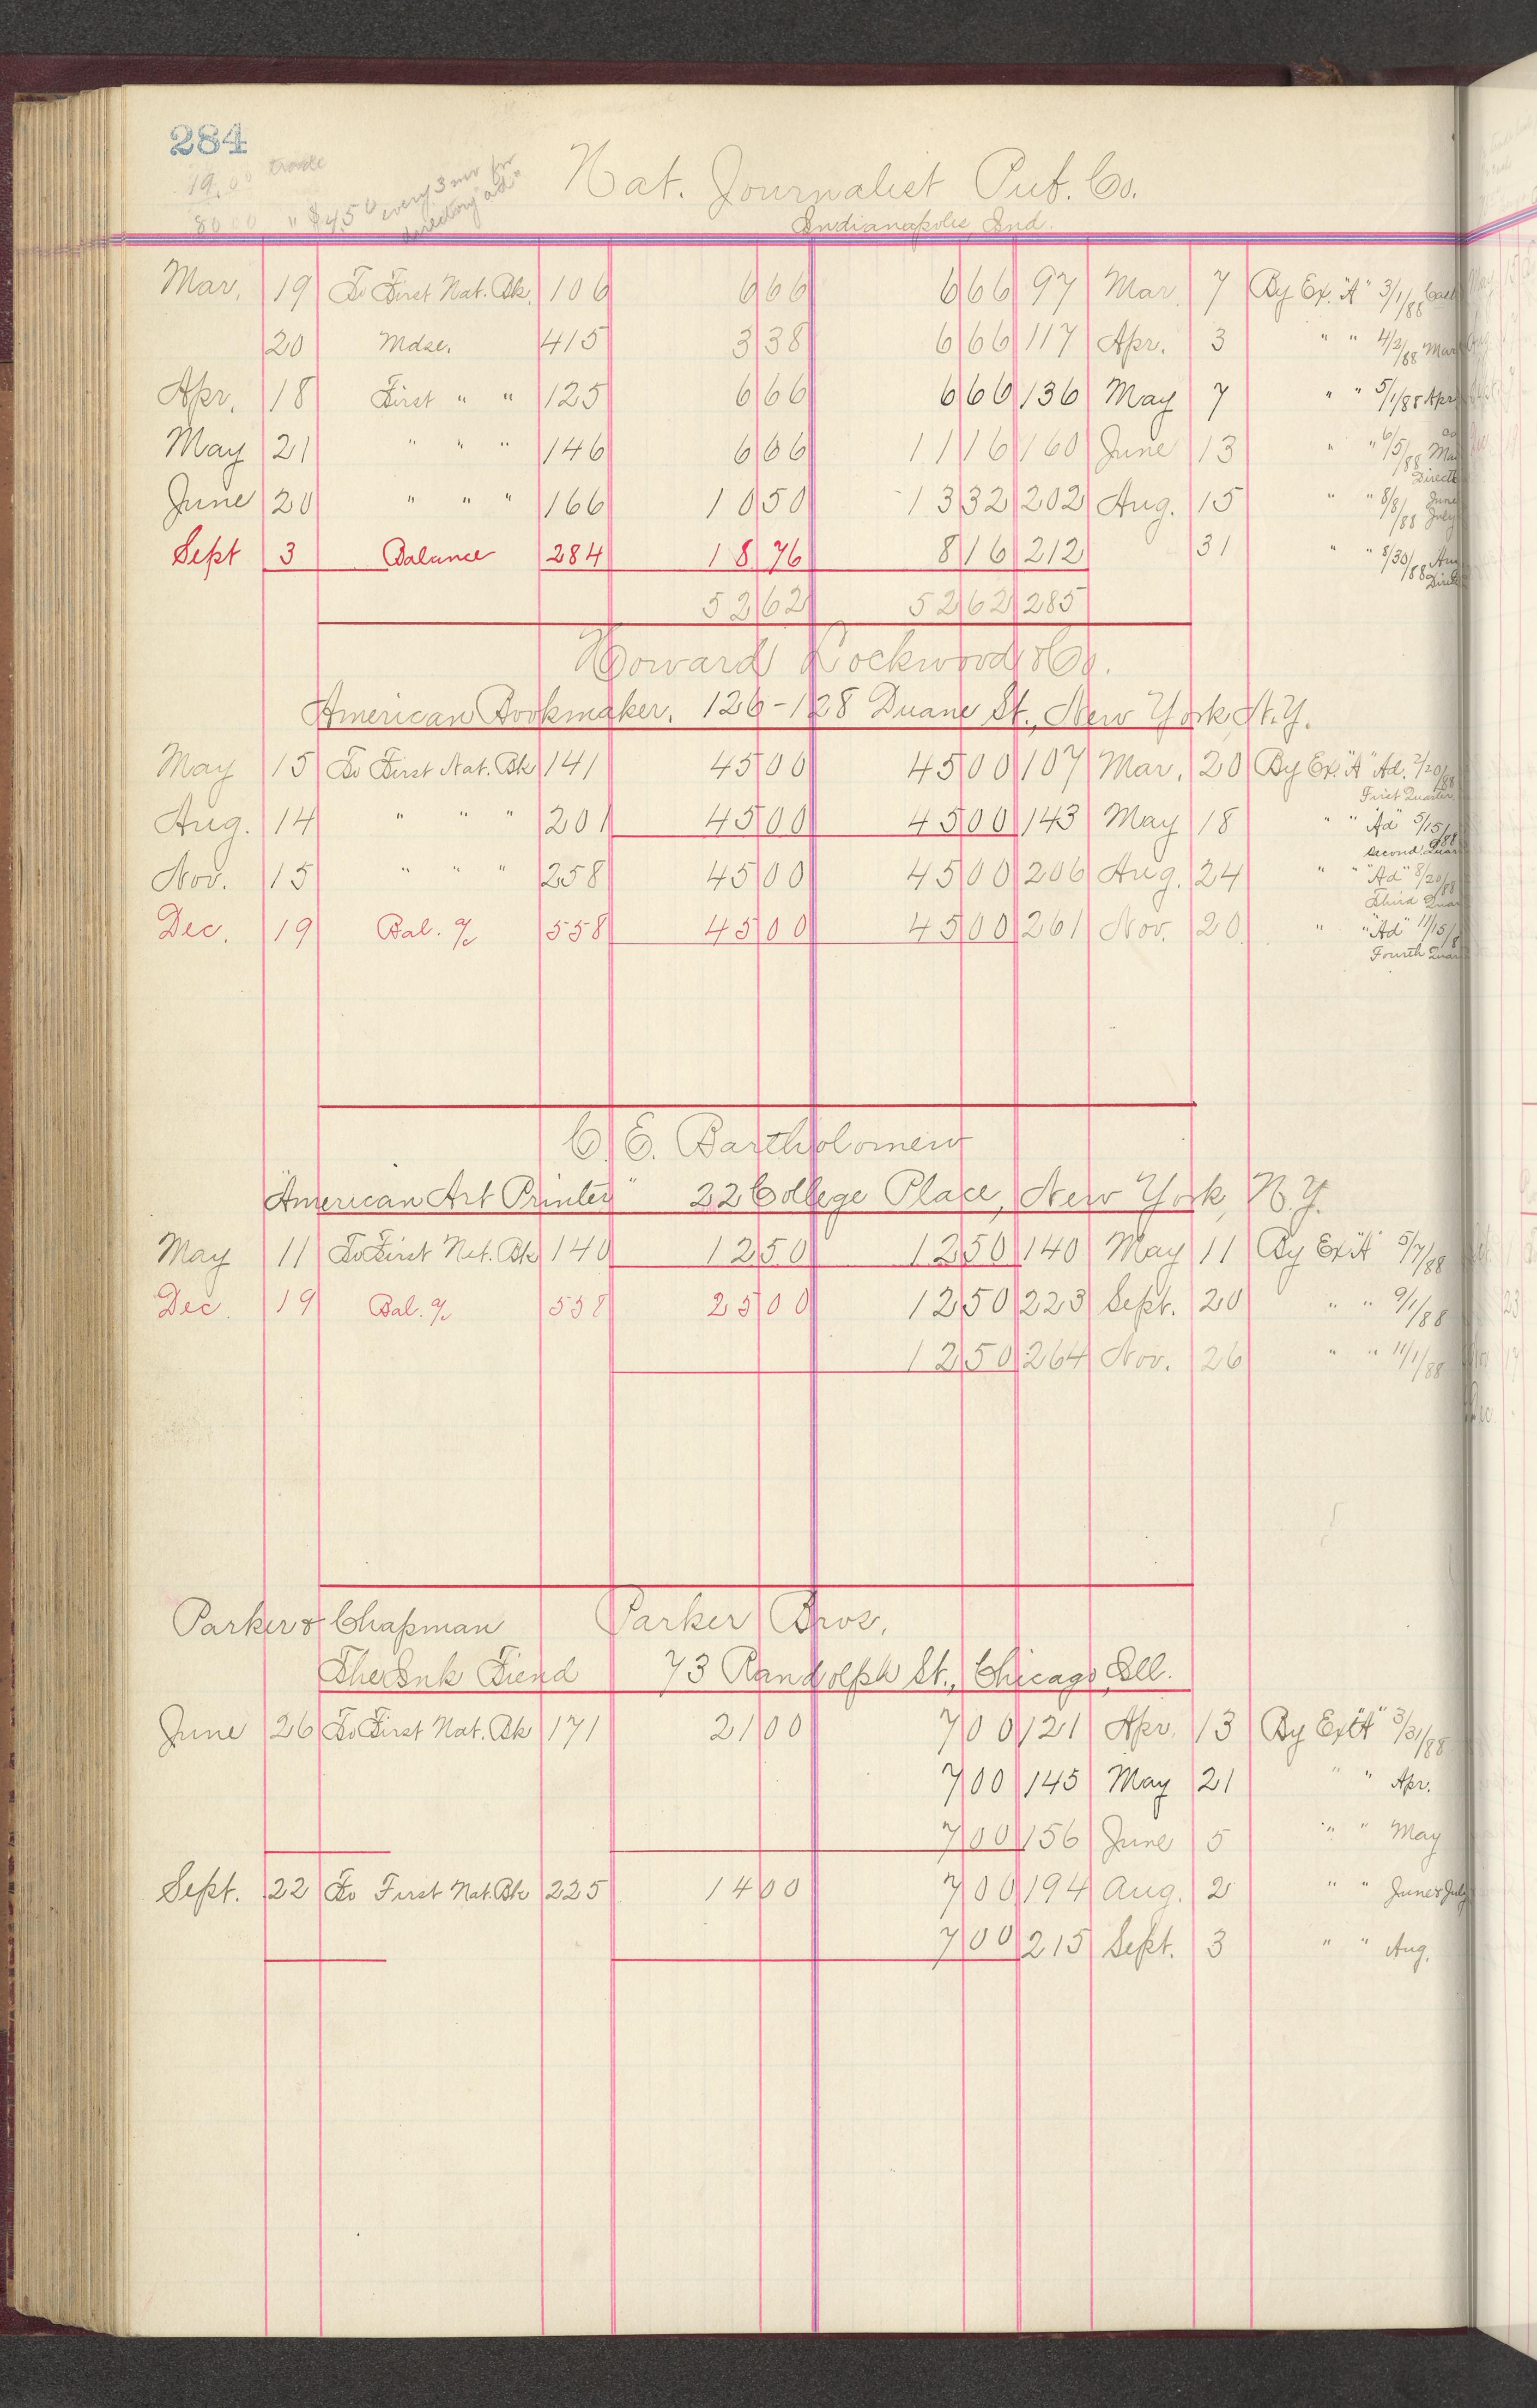 284
19.00 trade
80 00 " $4.50 every 3 mo for
directory "ad"
Nat. Journalist Pub. Co.
Indianapolis, Ind.
Mar. 19 To First Nat. Bk. 106 6 66 6 66 97 Mar. 7 By Ex. "A" 3/1/88
20 Mdse. 415 3 38 6 66 117 Apr. 3 " " 4/2/88 Mar
Apr. 18 First " " 125 6 66 6 66 136 May 7 " " 5/1/88 Apr
May 21 " " " 146 6 66 11 16 160 June 13 " " 6/5/88 Ma
Direct
June 20 " " " 166 10 50 13 32 202 Aug. 15 " " 8/8/88 June
July
Sept 3 Balance 284 18 76 8 16 212 31 " " 8/30/88 Aug
Direct
52 62 52 62 285
Howard Lockwood & Co.
American Bookmaker. 126-128 Duane St., New York, N.Y.
May 15 To First Nat. Bk 141 45 00 45 00 107 Mar. 20 By Ex. "A" Ad. 2/20/88
First Quarter.
Aug. 14 " " " 201 45 00 45 00 143 May 18 " " "Ad" 5/15/88
Second Quar
Nov. 15 " " " 258 45 00 45 00 206 Aug. 24 " " "Ad" 8/20/88
Third Quar
Dec. 19 Bal. % 558 45 00 45 00 261 Nov. 20 " "Ad" 11/15/8
Fourth Quar
C. E. Bartholomew
"American Art Printer" 22 College Place, New York, N.Y.
May 11 To First Nat. Bk 140 12 50 12 50 140 May 11 By Ex "A" 5/7/88
Dec. 19 Bal. % 558 25 00 12 50 223 Sept. 20 " " 9/1/88
12 50 264 Nov. 26 " " 11/1/88
Parker & Chapman Parker Bros.
The Ink Fiend 73 Randolph St., Chicago, Ill.
June 26 To First Nat. Bk 171 21 00 7 00 121 Apr. 13 By Ex "A" 3/31/88
7 00 145 May 21 " " Apr.
7 00 156 June 5 " " May
Sept. 22 To First Nat. Bk 225 14 00 7 00 194 Aug. 2 " " June & July
7 00 215 Sept. 3 " " Aug.